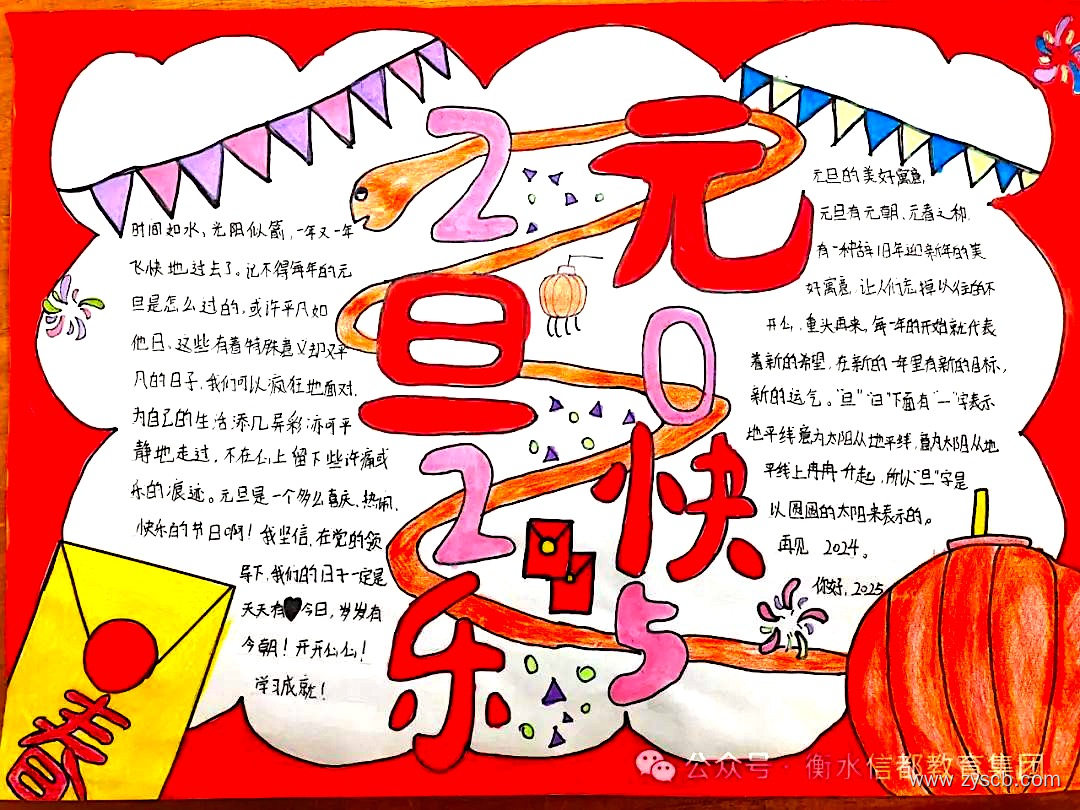 2025
元旦快乐
时间如水、光阴似箭,一年又一年
飞快地过去了。记不得每年的元
旦是怎么过的,或许平凡如
他日、这些有着特殊意义却又平
凡的日子,我们可以疯狂地面对,
为自己的生活添几异彩亦可平
静地走过,不在心上留下些许痛或
乐的痕迹。元旦是一个多么喜庆、热闹、
快乐的节日啊!我坚信,在党的领
导下,我们的日子一定是
天天有 今日,岁岁有
今朝!开开心心!
学习成就!
元旦的美好寓意,
元旦有元朝、元春之称.
有一种辞旧年迎新年的美
好寓意,让人们忘掉以往的不
开心,重头再来。每一年的开始就代表
着新的希望,在新的一年里有新的目标,
新的运气。"旦""日"下面有"一"字表示
地平线意为太阳从地平线,意为太阳从地
平线上冉冉升起,所以"旦"字是
以圆圆的太阳来表示的。
再见 2024。
你好,2025
春
公众号·衡水信都教育集团
www.zyscb.com